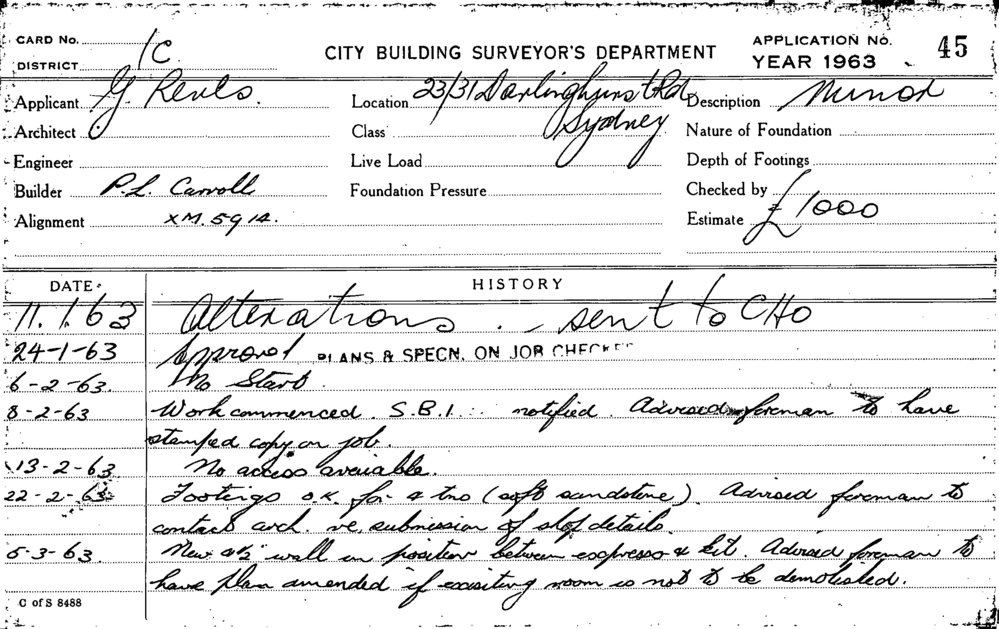 CARD No.
DISTRICT 1C
CITY BUILDING SURVEYOR'S DEPARTMENT
APPLICATION No. 45
YEAR 1963
Applicant G. Reves.
Location 23/31 Darlinghurst Rd
Sydney
Description Minor
Architect
Class
Nature of Foundation
Engineer
Live Load
Depth of Footings
Builder P.L. Carroll
Foundation Pressure
Checked by
Alignment XM. 5914.
Estimate £1000
DATE
HISTORY
11.1.63 Alterations. - sent to CHO
24-1-63 Approval PLANS & SPECN. ON JOB CHECKED
6-2-63. No Start.
8-2-63 Work commenced. S.B.I. notified. Advised foreman to have
stamped copy on job.
13-2-63 No access avaiable.
22-2-63 Footings o.k. for (soft sandstone). Advised foreman to
contact arch. re. submission of details
5-3-63. New 4½" wall in position between espresso & kit. Advised foreman to
have plan amended if exsisting room is not to be demolished.
C of S 8488